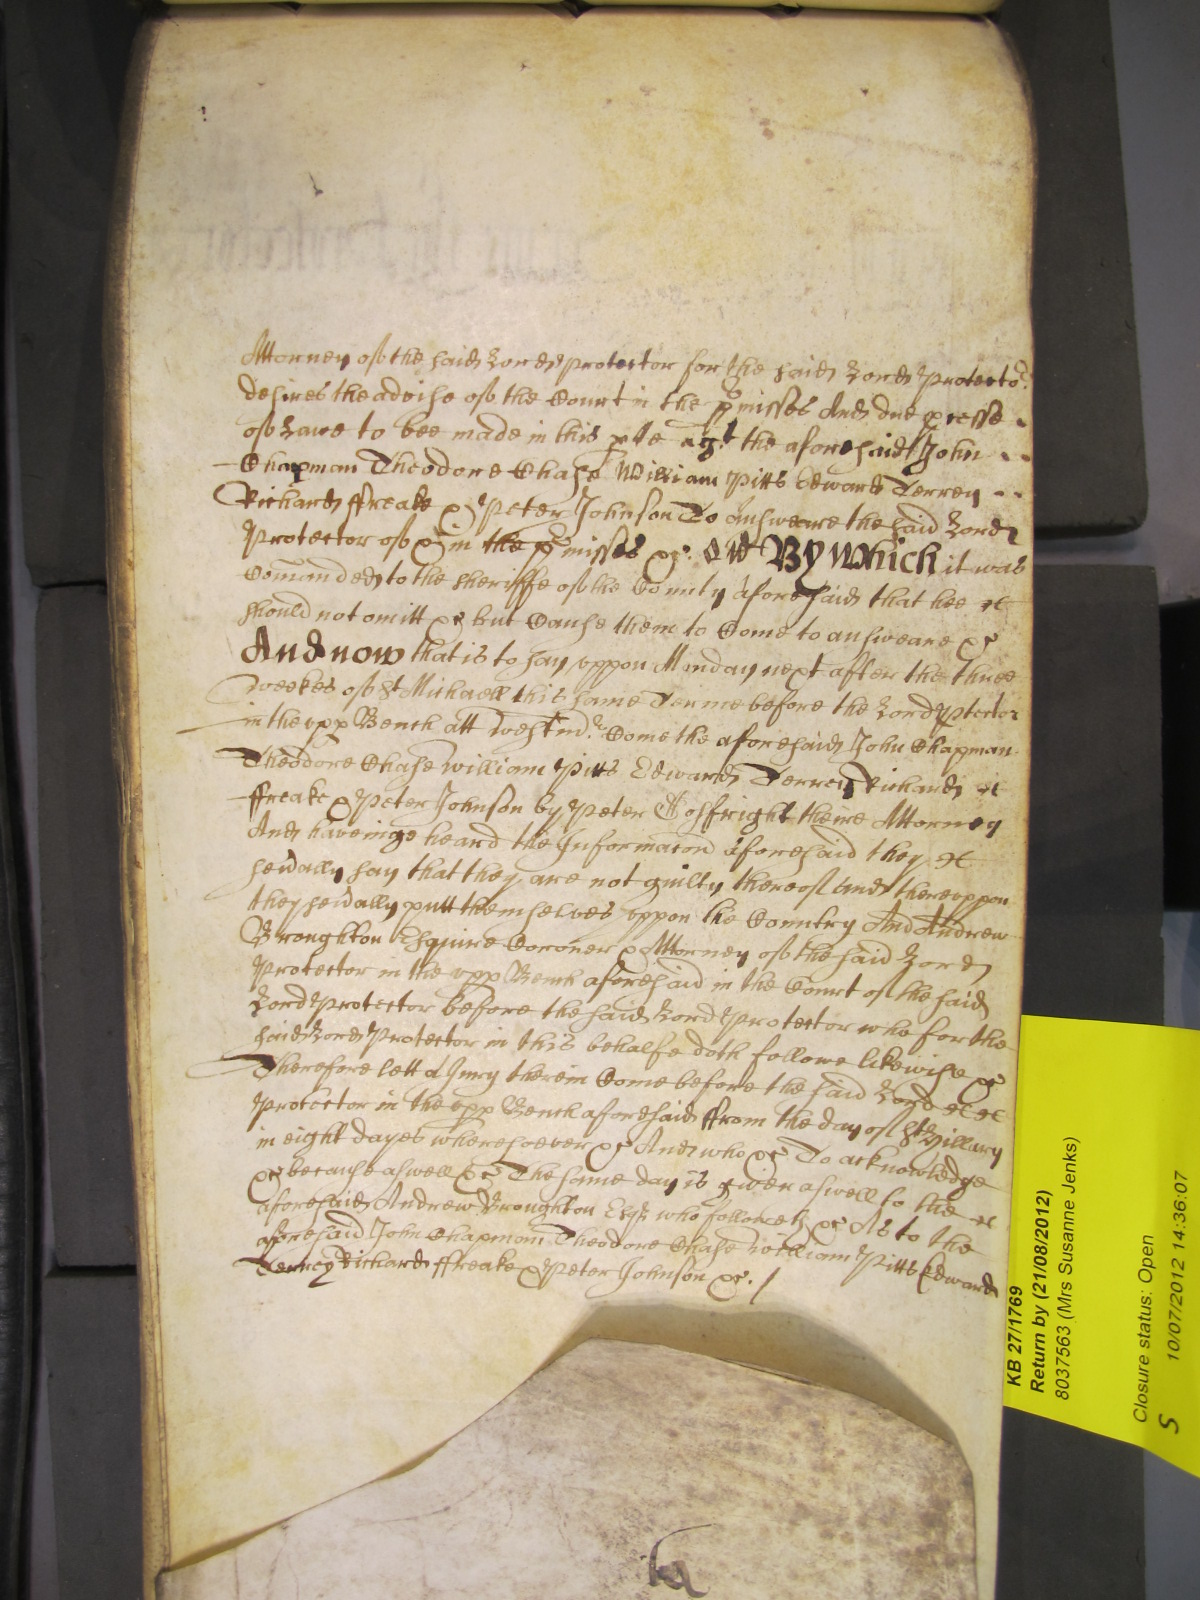 Attorney of the said Lord protector for the said Lord Protector
desires the advise of the Court in the pmisses And due pcesse
of Lawe to bee made in this pte agt the aforesaid John
Chapman Theodore Chase William Pitts Edward Terrey
Richard ffreake & Peter Johnson To answeare the said Lord
Protector of & in the pmisses &c. By Which it was
Comanded to the sheriffe of the County aforesaid that hee &c
should not omitt &c but Cause them to Come to answeare &c
And now that is to say uppon Munday next after the three
weekes of St Michaell this same Terme before the Lord Ptector
in the upp Bench att Westmr Come the aforesaid John Chapman
Theodore Chase William Pitts Edward Terrey Richard
ffreake & Peter Johnson by Peter theire Attorney
And haveinge heard the Informacon aforesaid they &c
sevally say that they are not guilty thereof and thereuppon
they sevally putt themselves uppon the Country And Andrew
Broughton Esquire Coroner & Attorney of the said Lord
Protector in the upp Bench aforesaid in the Court of the said
Lord Protector before the said Lord Protector who for the
said Lord Protector in this behalfe doth followe likewise &c
Therefore lett a Jury therein Come before the said Lord
Protector in the upp Bench aforesaid from the day of St Hillary
in eight dayes wheresoever &c And who &c To acknowledge
&c because aswell &c The same day is given aswell to the
aforesaid Andrew Broughton Esqr who followeth &c As to the
aforesaid John Chapman Theodore Chase William Pitts Edward
Terrey Richard ffreake & Peter Johnson &c. /
KB 27/1769
Return by (21/08/2012)
8037563 (Mrs Susanne Jenks)
Closure status: Open
10/07/2012 14:36:07
S